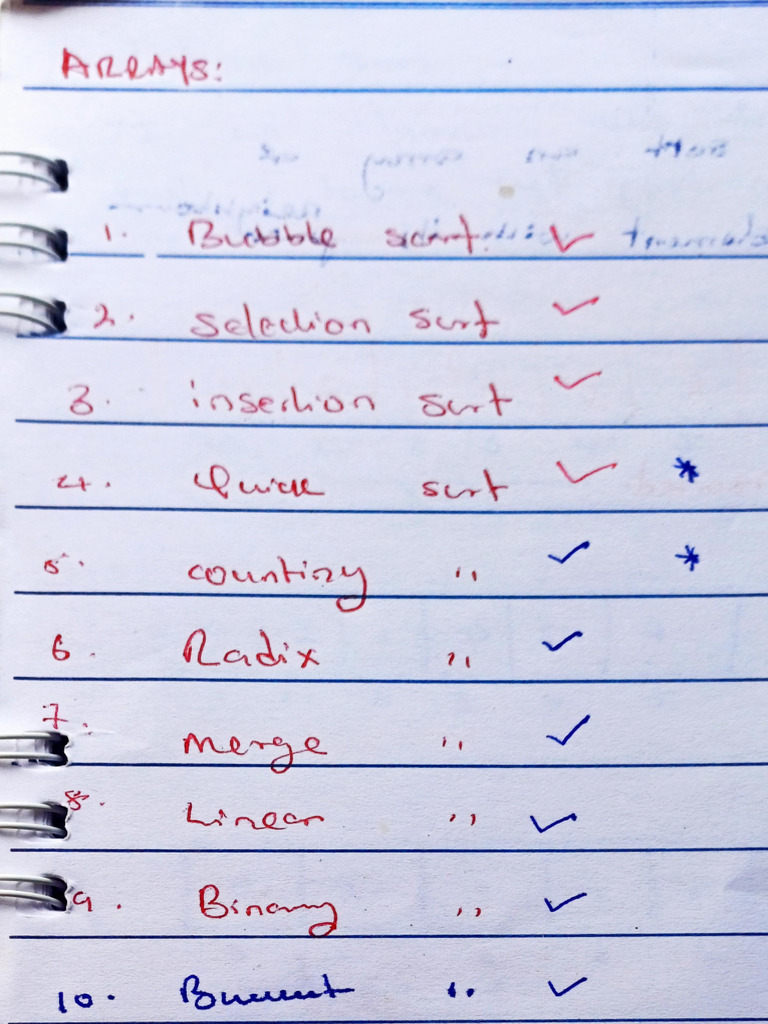 ARRAYS:
1. Bubble sort ✓
2. Selection sort ✓
3. insertion sort ✓
4. Quick sort ✓ *
5. counting " ✓ *
6. Radix " ✓
7. merge " ✓
8. Linear " ✓
9. Binary " ✓
10. " ✓